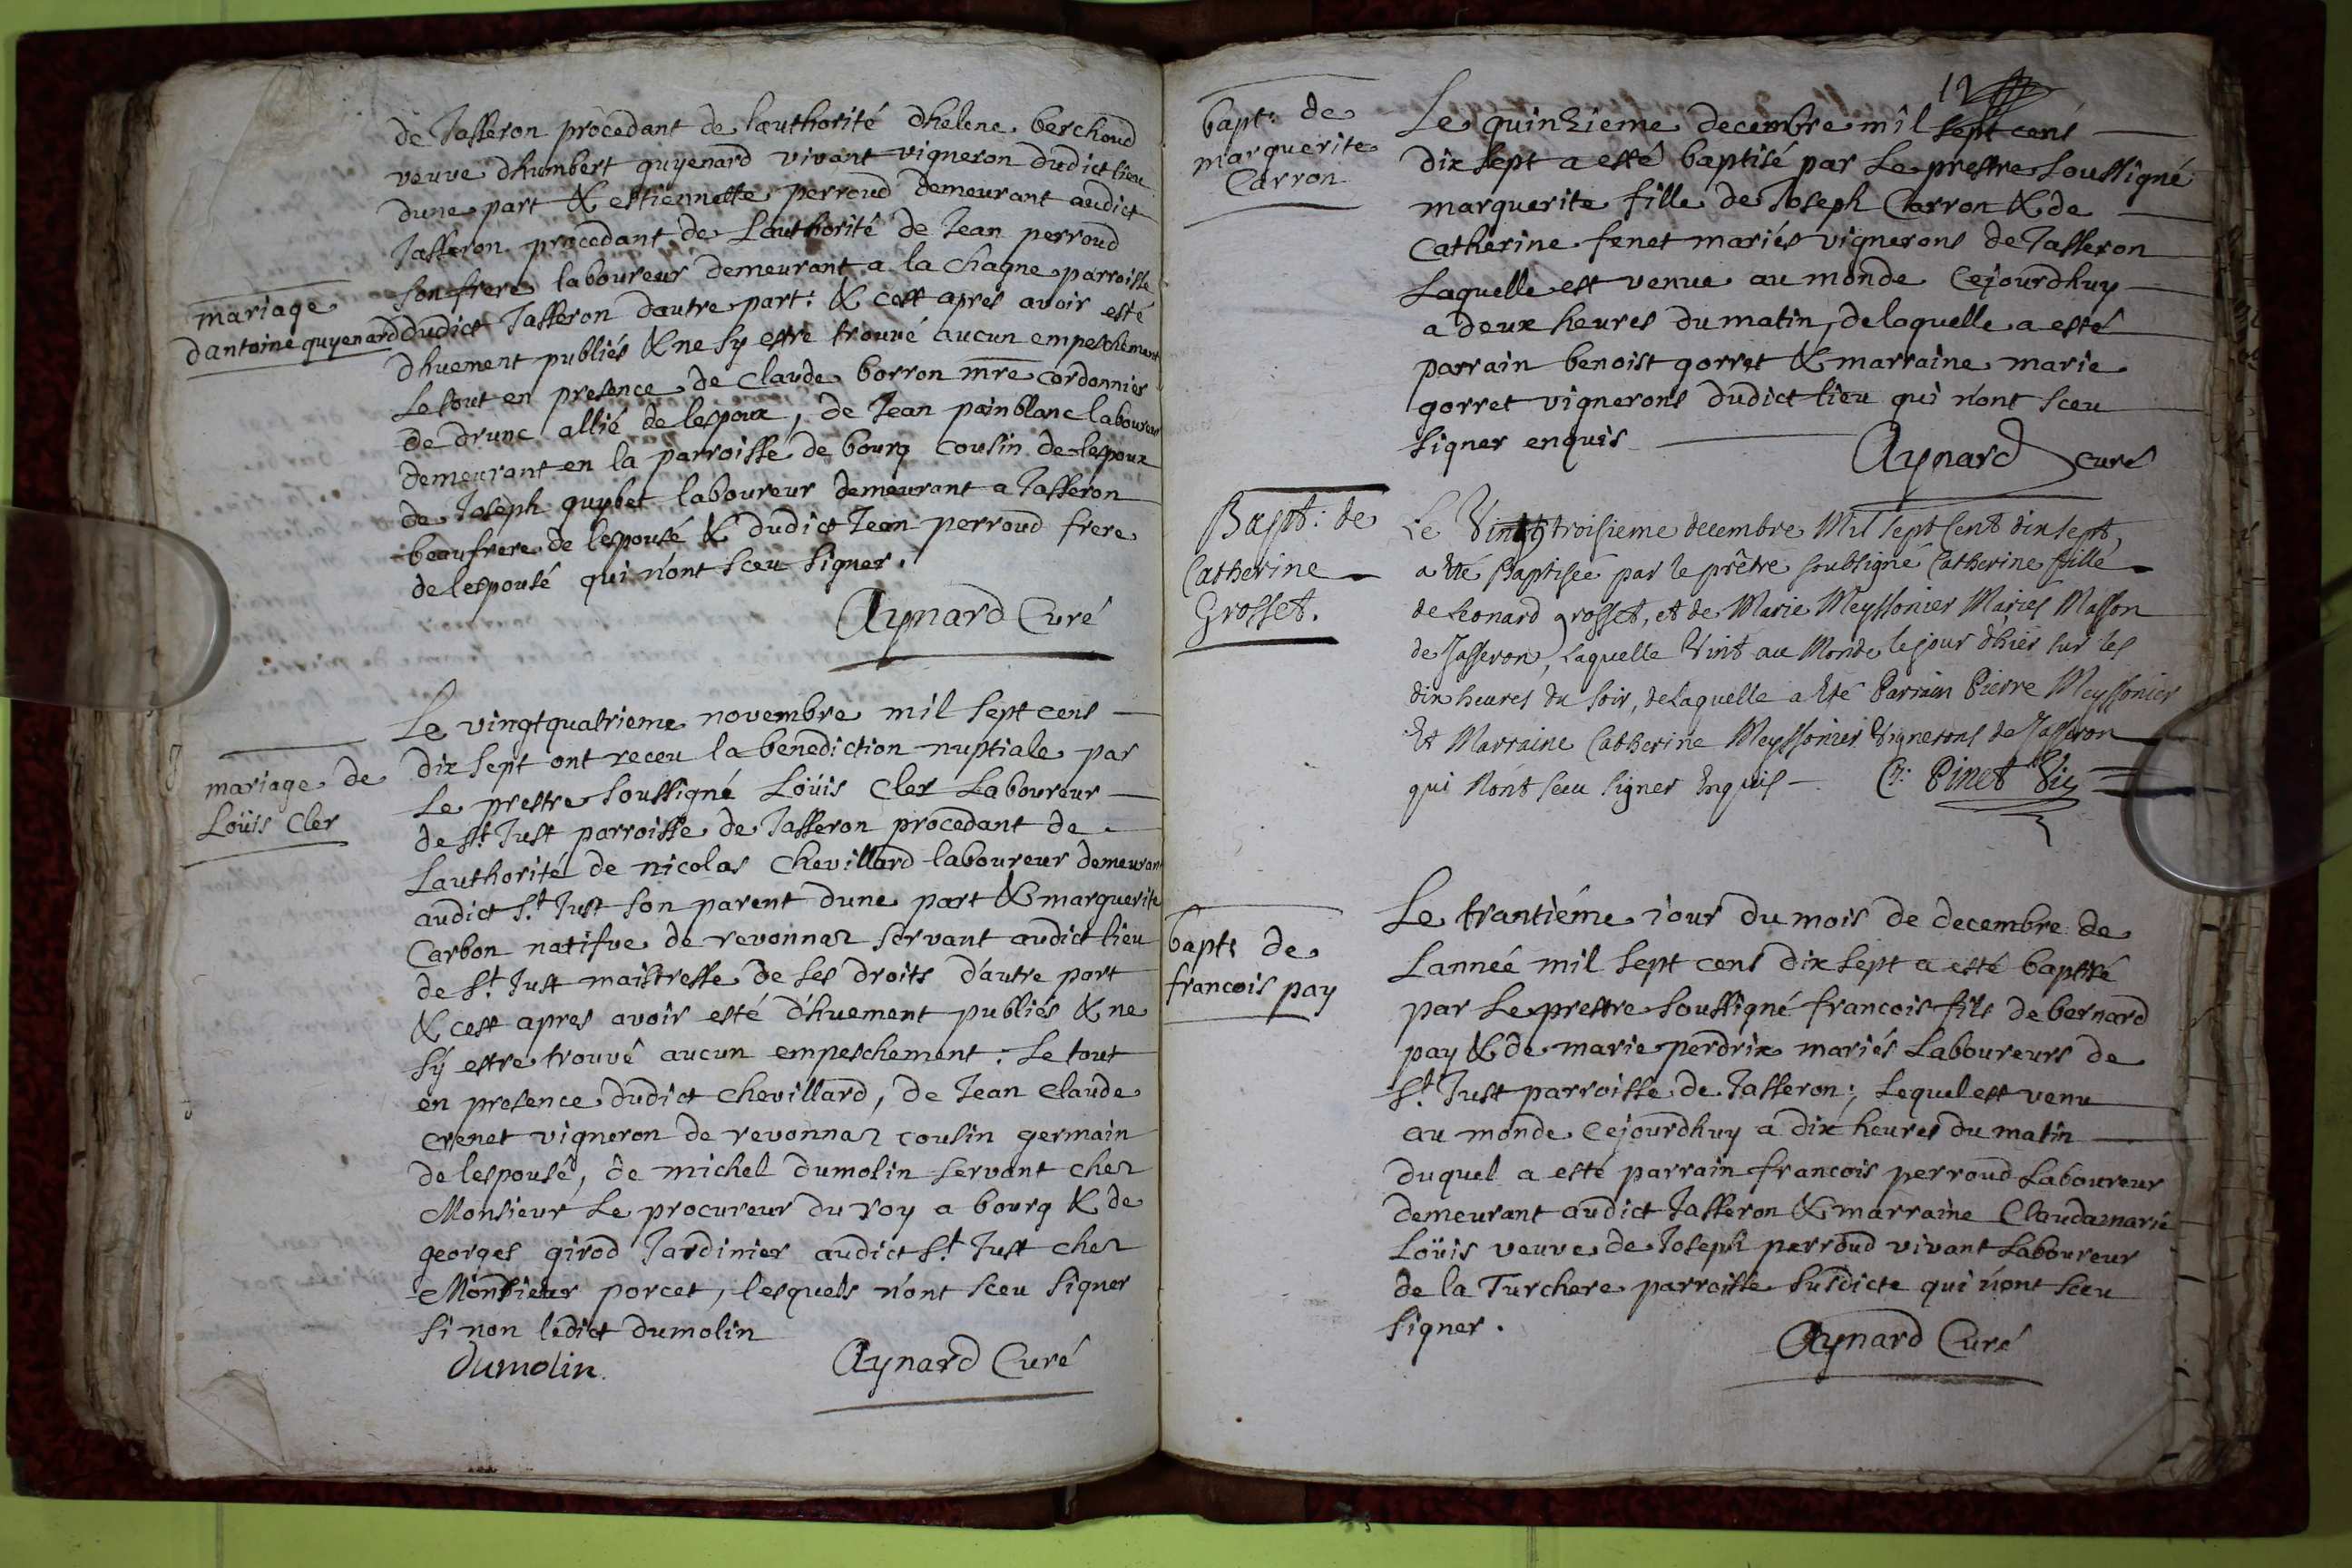 de Jasseron procedant de lauthorité dhelene berchoud
veuve dhumbert guyenard vivant vigneron dudict lieu
dune part & estiennette perroud demeurant audict
Jasseron procedant de Lauthorité de Jean perroud
son frere laboureur demeurant a la chagne parroisse
mariage
dantoine guyenard
dudict Jasseron dautre part: & cest apres avoir esté
dhuement publiés & ne sy estre trouvé aucun empeschement
Le tout en presence de claude borron mre cordonnier
de drunc allié de lespoux, de Jean painblanc laboureur
demeurant en la parroisse de bourg cousin de lespoux
de Joseph guybet laboureur demeurant a Jasseron
beaufrere de lespousé & dudict Jean perroud frere
de lespousé qui n'ont sceu signer.
Aynard Curé
mariage de
Loüis Cler
Le vingtquatrieme novembre mil sept cens
dix sept ont receu la benediction nuptiale par
Le prestre soussigné Loüis Cler Laboureur
de st. Just parroisse de Jasseron procedant de
Lauthorité de nicolas Chevillard laboureur demeurant
audict s.t Just son parent dune part & marguerite
Carbon natifve de revonnaz servant audict lieu
de s.t Just maistresse de ses droits d'autre part
& cest apres avoir esté d'huement publiés & ne
sÿ estre trouvé aucun empeschement: Le tout
en presence dudict chevillard, de Jean Claude
crenet vigneron de revonnaz cousin germain
de lespousé, de michel dumolin servant chez
Monsieur Le procureur du roy a bourg & de
georges girod Jardinier audict s.t Just chez
Monsieur porcet, lesquels n'ont sceu signer
si non ledict dumolin
Dumolin. Aynard Curé
12
bapt: de
marguerite
Carron
Le quinzieme decembre mil sept cens
dix sept a esté baptisé par Le prestre soussigné
marguerite fille de Joseph Carron & de
Catherine fenet mariés vignerons de Jasseron
Laquelle est venue au monde Cejourdhuy
a deux heures du matin, de laquelle a esté
parrain benoist gorret & marraine marie
gorret vignerons dudict lieu qui n'ont sceu
signer enquis
Aynard curé
Bapt: de
Catherine
Grosset.
Le Vingt troisieme decembre Mil sept Cent dix sept,
a été Baptisée par le prêtre soubsigné Catherine fille
de Leonard grosset, et de Marie Meyssonier Mariés Masson
de Jasseron, Laquelle Vint au Monde le jour d'hier sur les
dix heures du soir, de laquelle a été Parrain Pierre Meyssonier
Et Marraine Catherine Meyssonier Vignerons de Jasseron
qui N'ont sceu signer Enquis - C: Pinet Vic
bapt: de
francois pay
Le trantiéme iour du mois de decembre de
Lanneé mil sept cens dix sept a esté baptisé
par Le prestre soussigné francois fils de bernard
pay & de marie perdrix mariés Laboureurs de
S.t Just parroisse de Jasseron; Lequel est venu
au monde Cejourdhuy a dix heures du matin
duquel a esté parrain francois perroud Laboureur
demeurant audict Jasseron & marraine Claudamarie
Loüis veuve de Joseph perroud vivant Laboureur
de la Turchere parroisse susdicte qui n'ont sceu
signer.
Aynard Curé